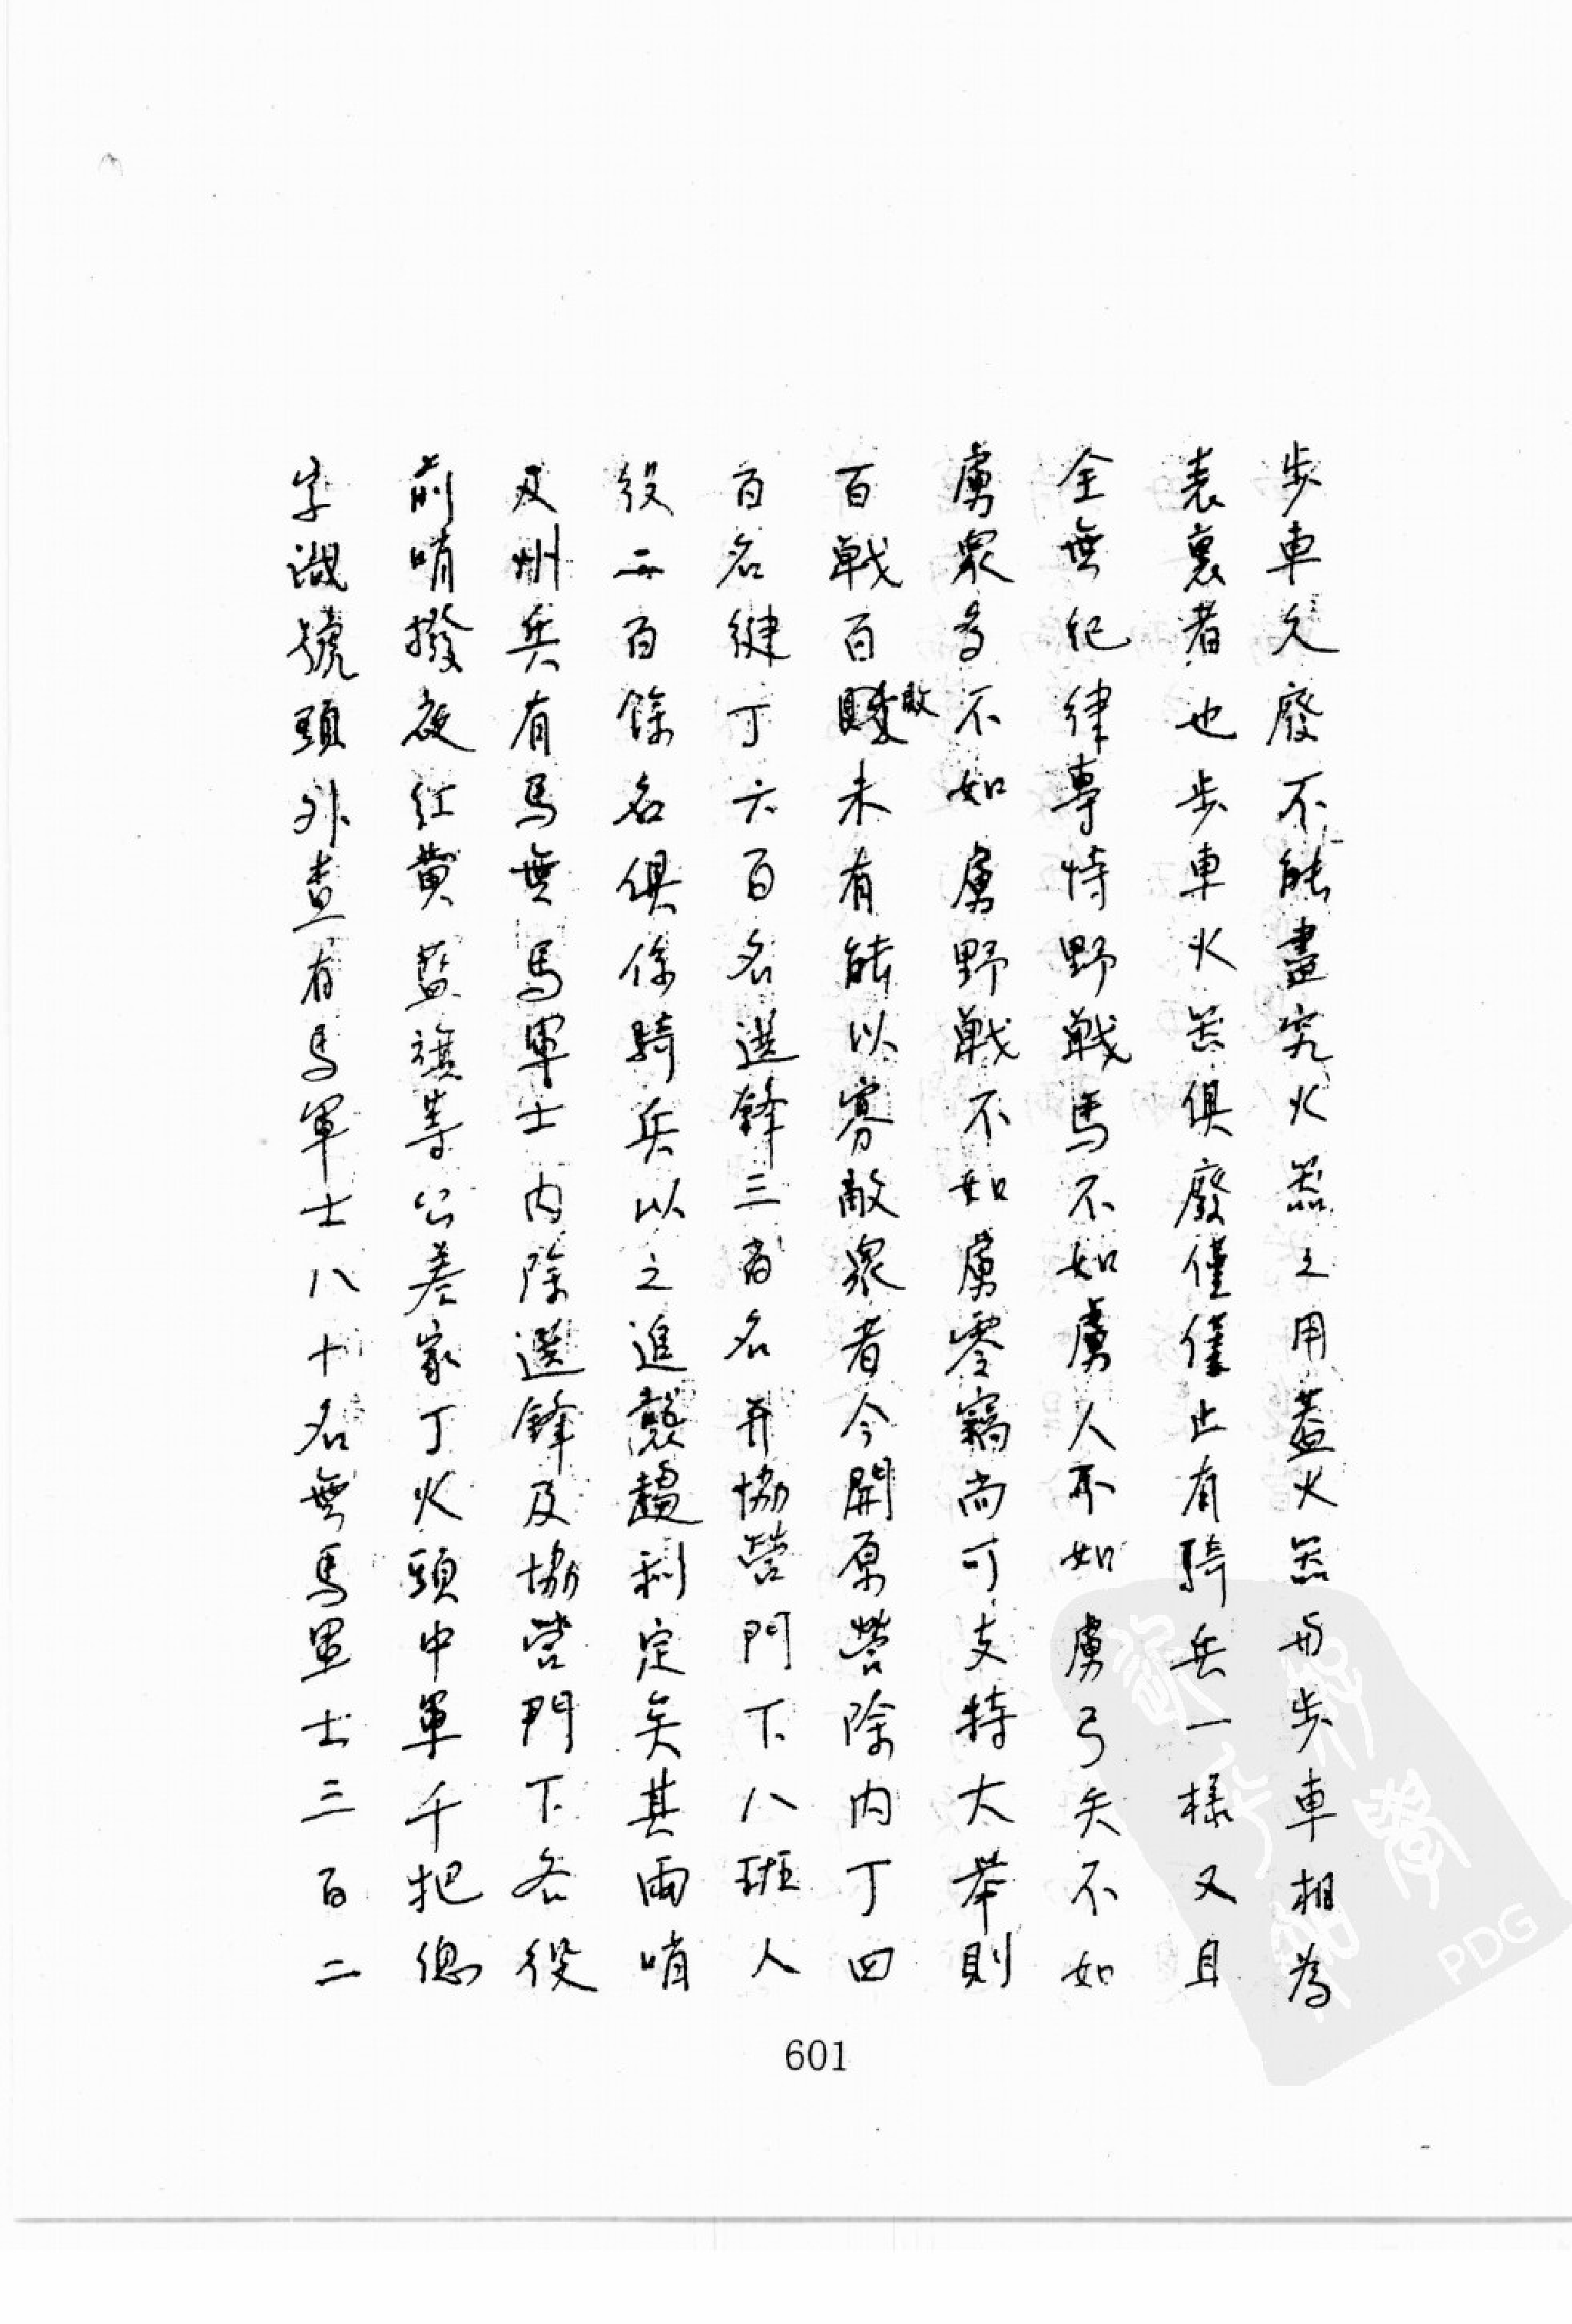 步車久廢不能盡究火器之用蓋火器与步車相為
表裏者也步車火器俱廢僅僅止有騎兵一樣又且
全無紀律專恃野戰馬不如虜人不如虜弓矢不如
虜衆多不如虜野戰不如虜零竊尚可支持大舉則
百戰百敗未有能以寡敵衆者今開原營除内丁四
百名健丁六百名選鋒三百名并協營門下八班人
役二百餘名俱係騎兵以之進襲趨利定矣其兩哨
及州兵有馬無馬軍士内除選鋒及協營門下各役
前哨撥夜紅黄藍旗等公差家丁火頭中軍千把總
字識號頭外查有馬軍士八十名無馬軍士三百二
601
PDG